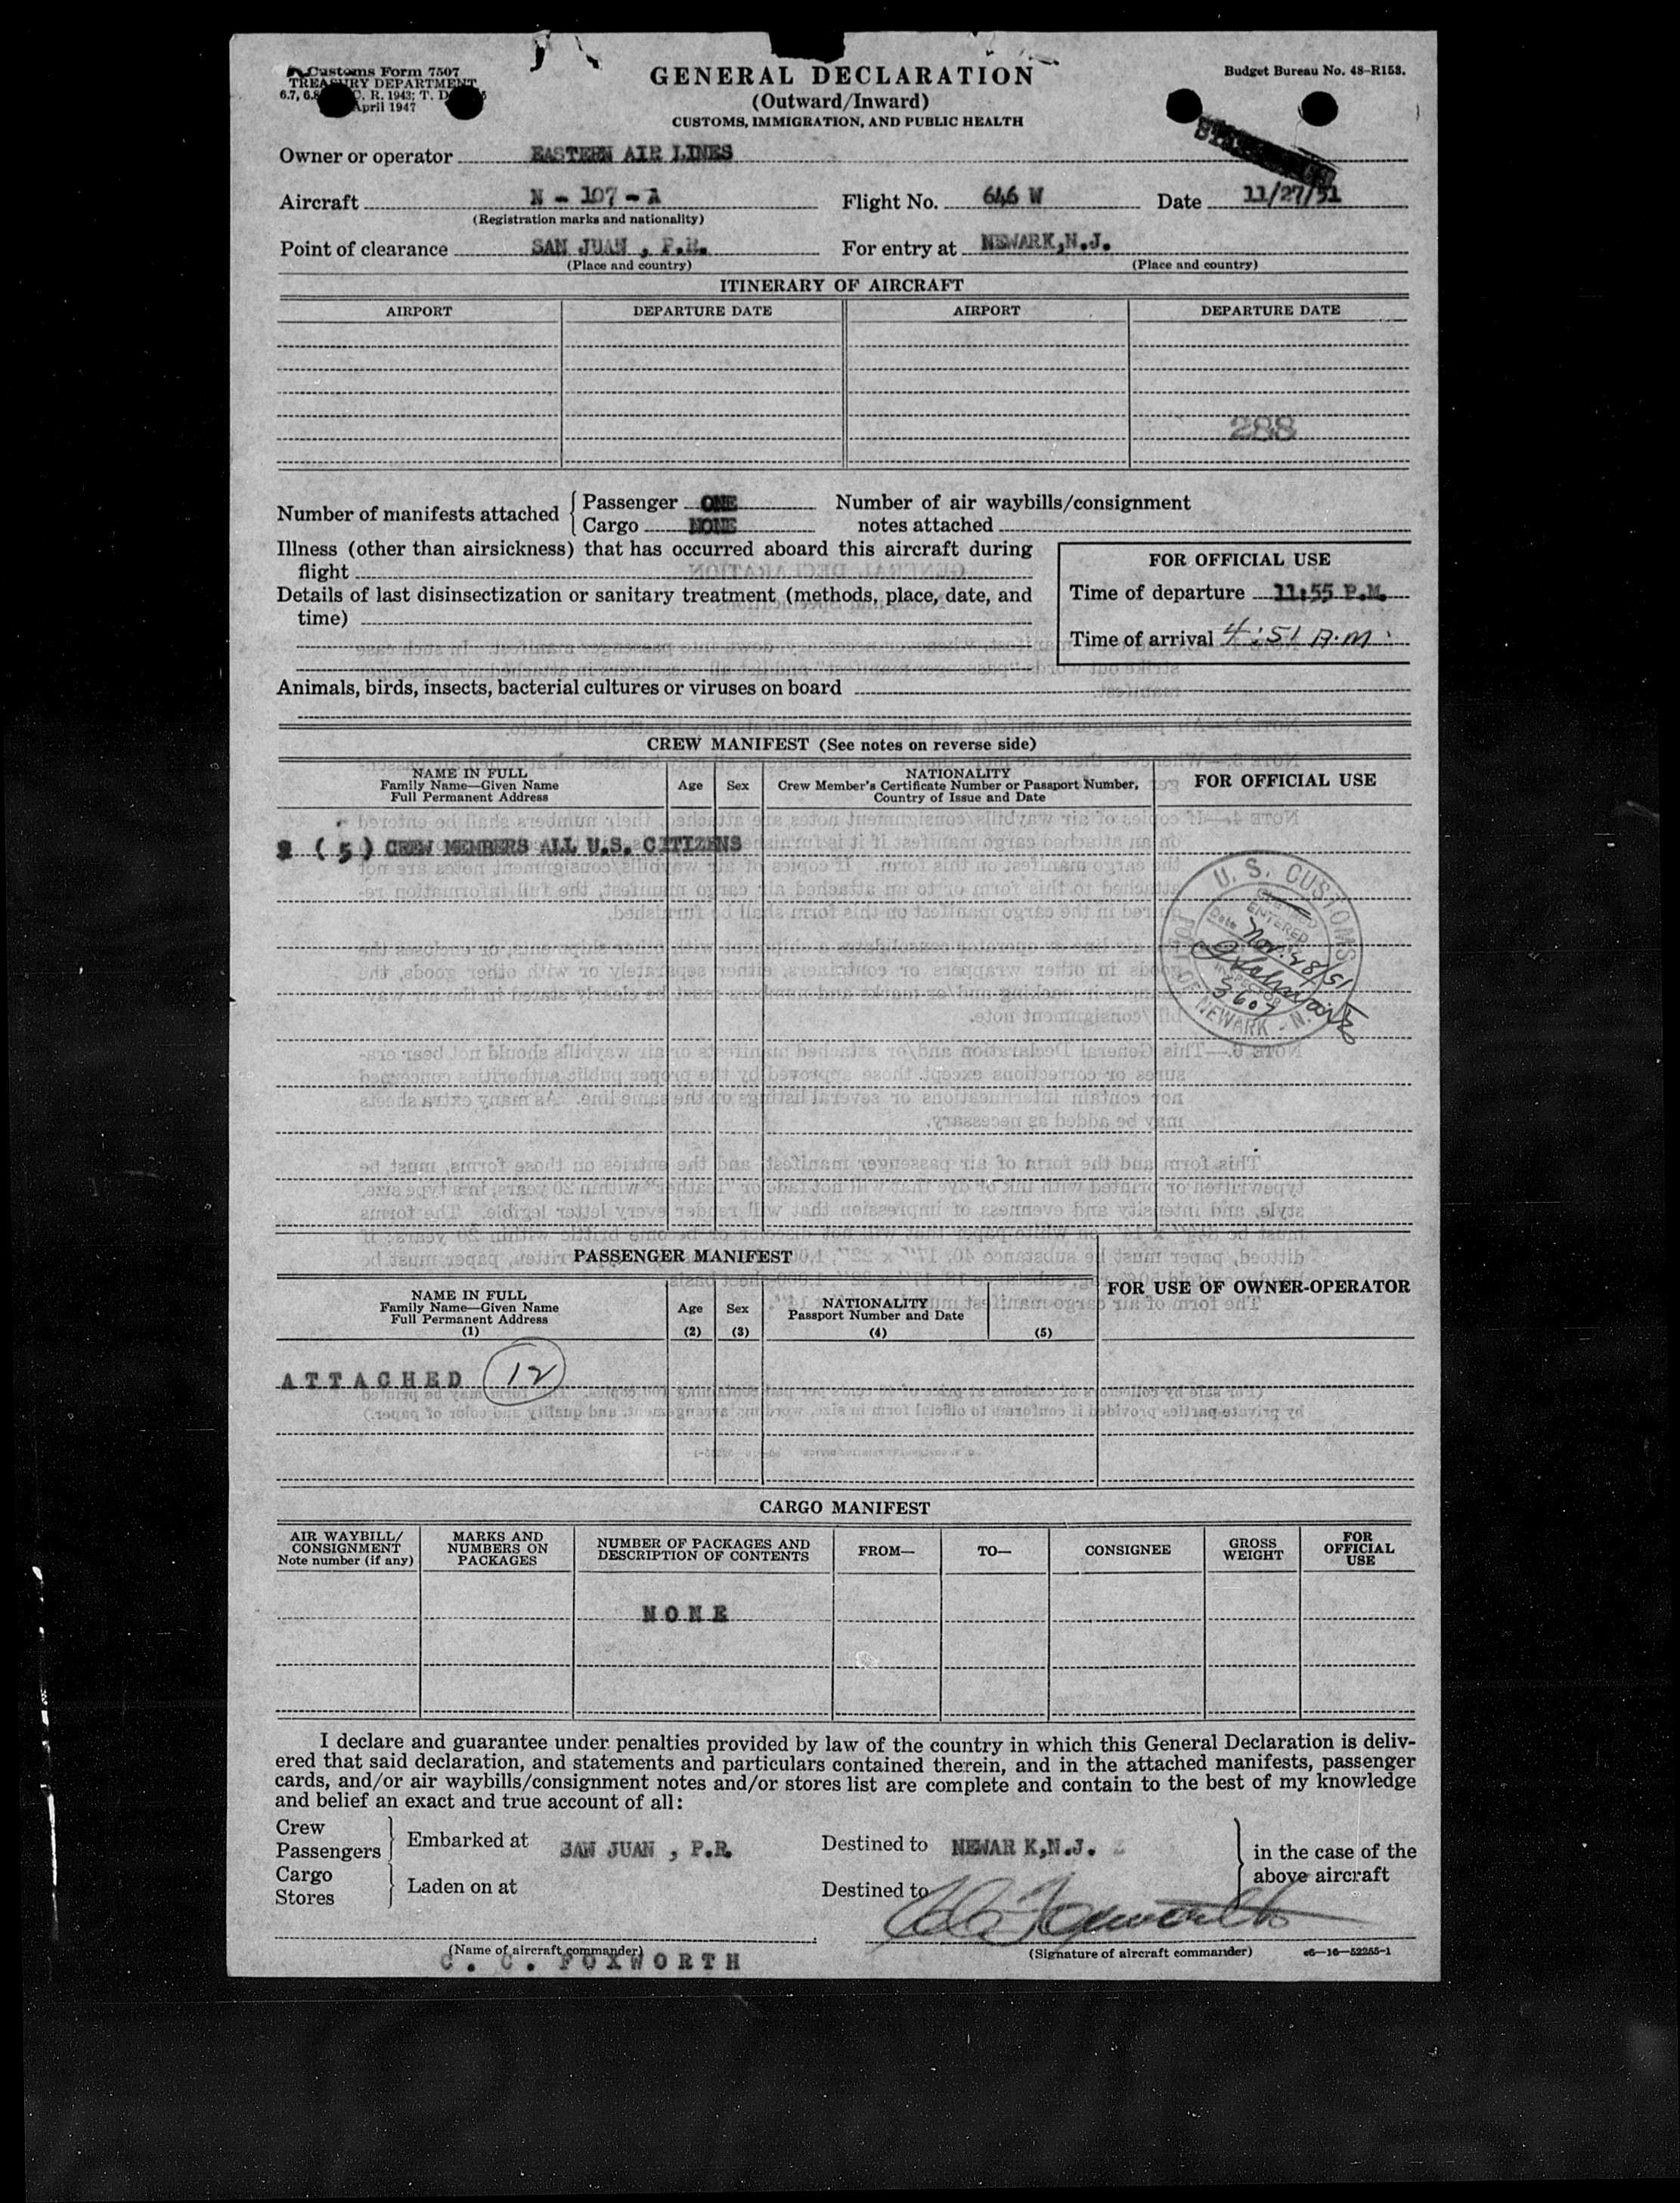 Customs Form 7507
TREASURY DEPARTMENT
6.7, 6.8 C. R. 1943; T. D.
April 1947
GENERAL DECLARATION
(Outward/Inward)
CUSTOMS, IMMIGRATION, AND PUBLIC HEALTH
Budget Bureau No. 48-R153.
Owner or operator EASTERN AIR LINES
Aircraft N - 107 - A Flight No. 646 W Date 11/27/51
(Registration marks and nationality)
Point of clearance SAN JUAN , P.R. For entry at NEWARK,N.J.
(Place and country) (Place and country)
ITINERARY OF AIRCRAFT
AIRPORT DEPARTURE DATE AIRPORT DEPARTURE DATE
288
Number of manifests attached { Passenger ONE Number of air waybills/consignment
Cargo NONE notes attached
Illness (other than airsickness) that has occurred aboard this aircraft during
flight
Details of last disinsectization or sanitary treatment (methods, place, date, and
time)
FOR OFFICIAL USE
Time of departure 11:55 P.M.
Time of arrival 4:51 A.M.
Animals, birds, insects, bacterial cultures or viruses on board
CREW MANIFEST (See notes on reverse side)
NAME IN FULL
Family Name—Given Name
Full Permanent Address
Age
Sex
NATIONALITY
Crew Member's Certificate Number or Passport Number,
Country of Issue and Date
FOR OFFICIAL USE
( 5 ) CREW MEMBERS ALL U.S. CITIZENS
U. S. CUSTOMS
ENTERED
Date Nov. 28/51
INSPECTOR
3607
PORT OF NEWARK - N.
PASSENGER MANIFEST
NAME IN FULL
Family Name—Given Name
Full Permanent Address
(1)
Age
(2)
Sex
(3)
NATIONALITY
Passport Number and Date
(4)
(5)
FOR USE OF OWNER-OPERATOR
ATTACHED 12
CARGO MANIFEST
AIR WAYBILL/
CONSIGNMENT
Note number (if any)
MARKS AND
NUMBERS ON
PACKAGES
NUMBER OF PACKAGES AND
DESCRIPTION OF CONTENTS
FROM—
TO—
CONSIGNEE
GROSS
WEIGHT
FOR
OFFICIAL
USE
NONE
I declare and guarantee under penalties provided by law of the country in which this General Declaration is deliv-
ered that said declaration, and statements and particulars contained therein, and in the attached manifests, passenger
cards, and/or air waybills/consignment notes and/or stores list are complete and contain to the best of my knowledge
and belief an exact and true account of all:
Crew
Passengers } Embarked at SAN JUAN , P.R. Destined to NEWAR K,N.J.
Cargo
Stores } Laden on at Destined to
in the case of the
above aircraft
C C Foxworth
(Name of aircraft commander) (Signature of aircraft commander) c6—16—52255-1
C. C. FOXWORTH